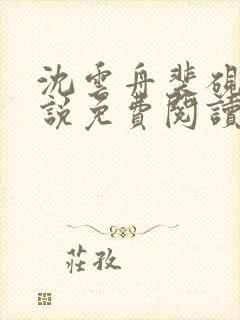 沈雲舟裴硯
說免費閱讀
莊孜